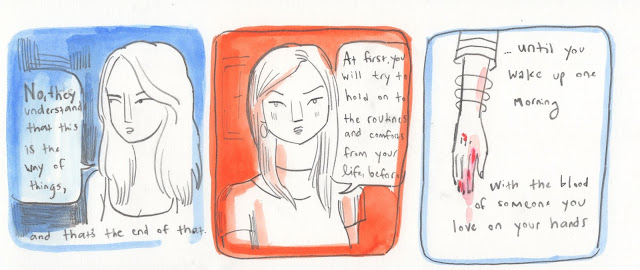 No, they
understand
that this
is the
way of
things,
and that's the end of that.
At first, you
will try to
hold on to
the routines
and comforts
from your
life, before,
... until you
wake up one
morning
with the blood
of someone you
love on your hands